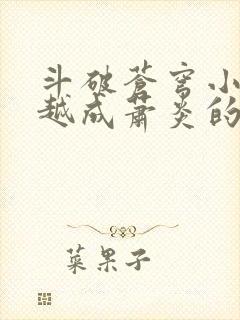 斗破苍穹小
越成萧炎的
菜果子